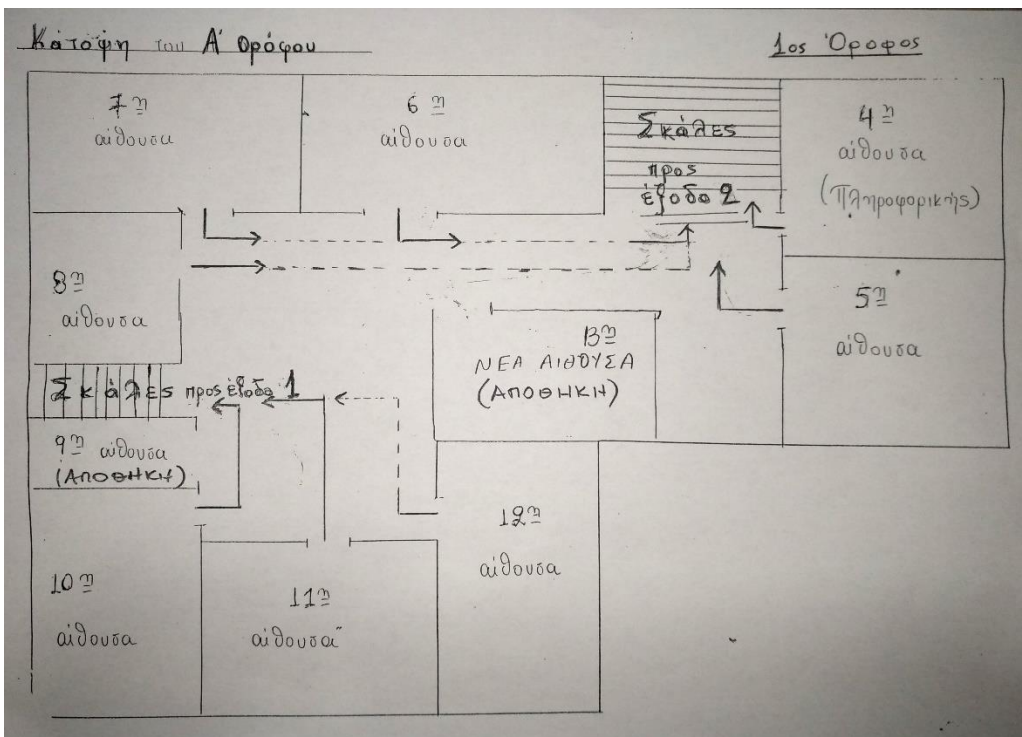 Κάτοψη του Α' Ορόφου
1ος Όροφος
7η
αίθουσα
6η
αίθουσα
Σκάλες
προς
έξοδο 2
4η
αίθουσα
(Πληροφορικής)
8η
αίθουσα
5η
αίθουσα
13η
ΝΕΑ ΑΙΘΟΥΣΑ
(ΑΠΟΘΗΚΗ)
Σκάλες προς έξοδο 1
9η αίθουσα
(ΑΠΟΘΗΚΗ)
12η
αίθουσα
10η
αίθουσα
11η
αίθουσα